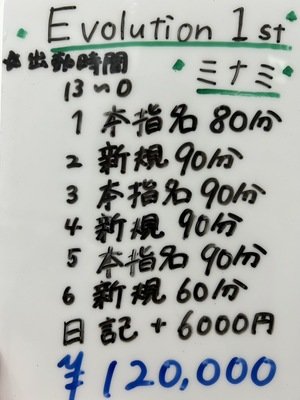 Evolution 1st
ミナミ
出勤時間
13~0
1 本指名 80分
2 新規 90分
3 本指名 90分
4 新規 90分
5 本指名 90分
6 新規 60分
日記 + 6000円
¥120,000